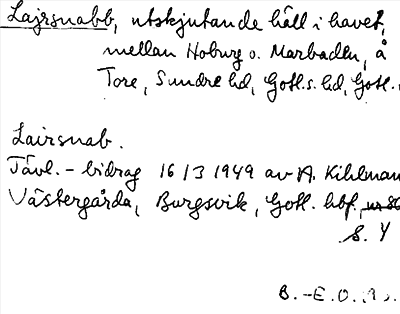 Lajrsnabb, utskjutande häll i havet,
mellan Hoburg o. Marbadlu, å
Tore, Sundre hd, Gotl.s. hd, Gotl.
Lairsnab.
Tävl.-bidrag 16/3 1949 av A. Kihlman
Västergårda, Burgsvik, Gotl. hbf,
S. 4
B.-E.O.